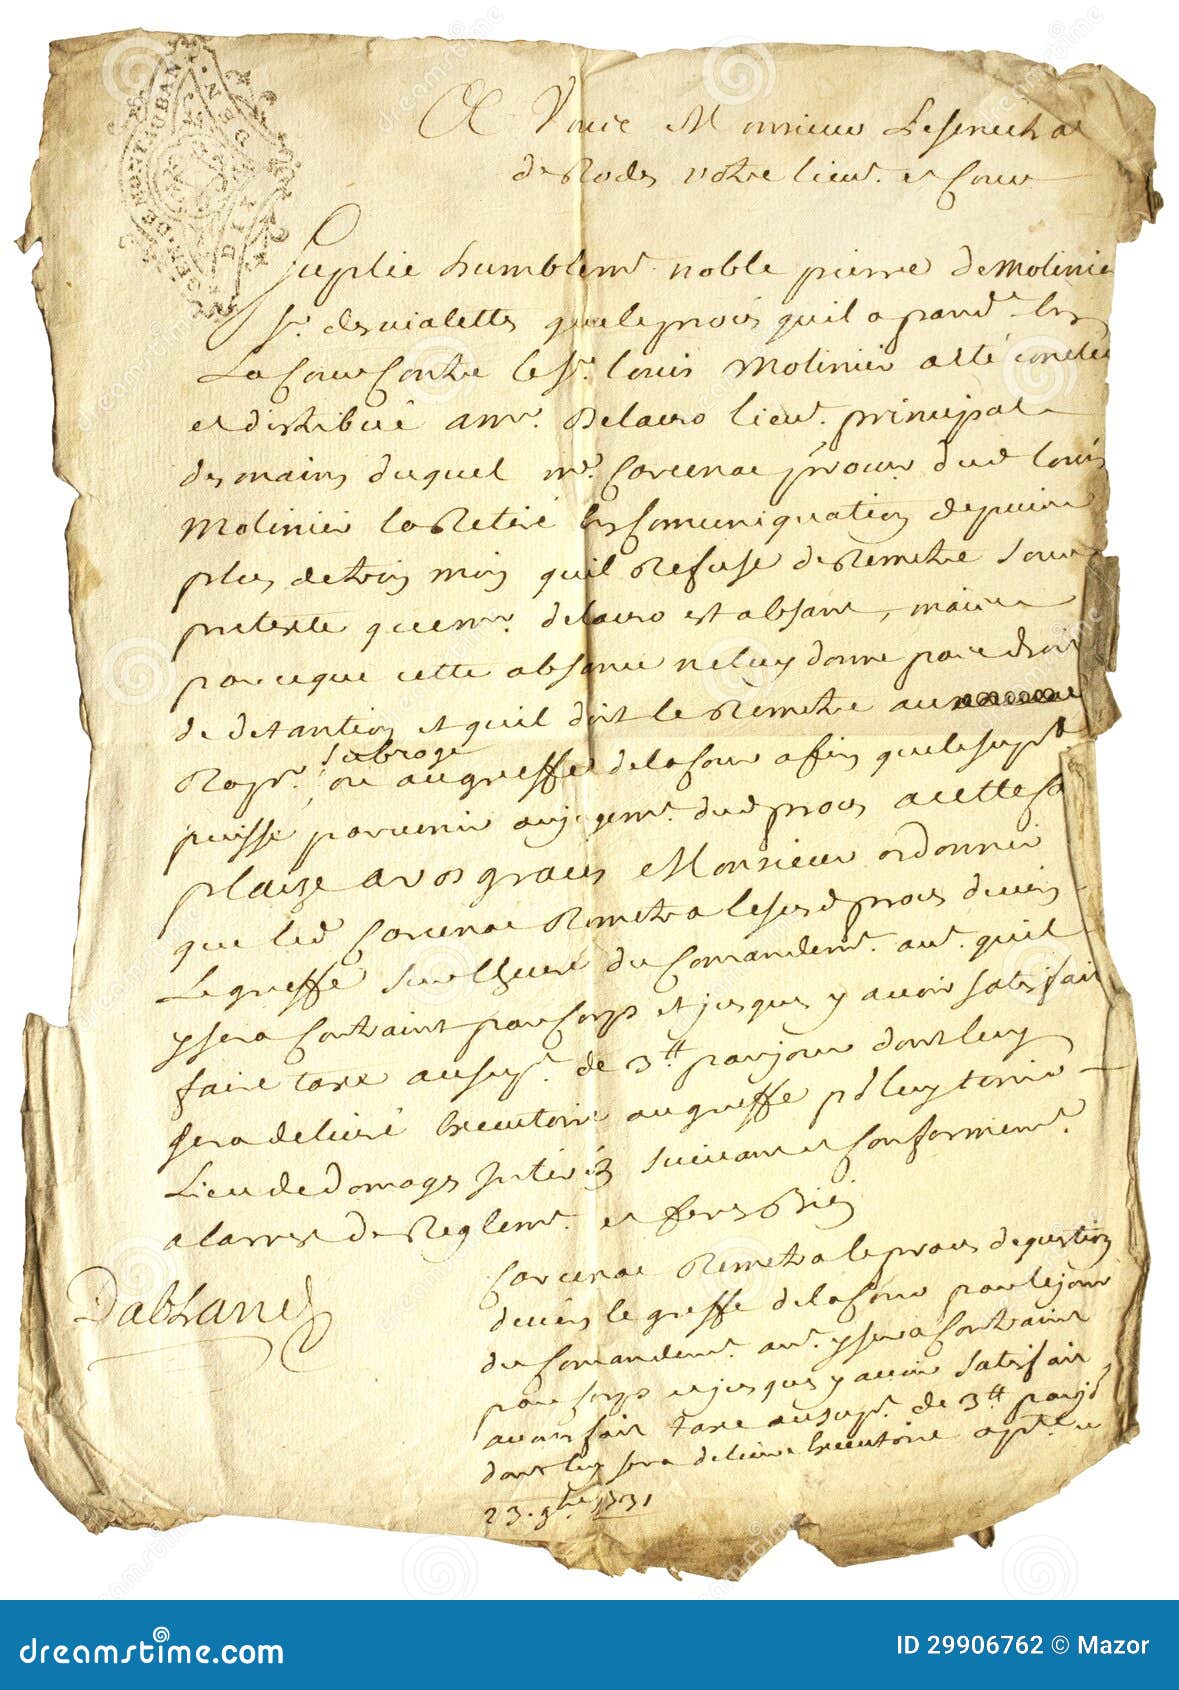 A Vous Monsieur Le senechal
de Rodes votre lieut. et Cour
Suplie humblemt. noble pierre de Molinie
sr. des vialettes que le proces qu'il a pand.
La Cour Contre le Sr. louis Molinier a esté
et distribué a mr. Delauro lieut. principal
des mains duquel me. Carcenac procur dud louis
Molinier la Retiré en Comuniquation depuis
plus de trois mois quil Refuse de Remetre sous
pretexte que mr. delauro est absant, mais
par ce que cette absance ne luy donne pas droit
de detantion et quil doit le Remetre au
subrogé
Rapr. ou au greffe de la Cour afin que le supt
puisse parvenir au jugemt. dud proces a cette
plaize a vos graces Monsieur ordonner
que led Carcenac Remetra le susd proces devers
Le greffe sur lheure du Comandemt. aut. quil
y sera Contraint par Corps et jusques y avoir satisfait
faire taxe au supt. de 3tt par jour dont luy
sera delivré executoire au greffe pr luy tenir
Lieu de domages Interéz suivant et Conformemt.
a larrest de Reglemt. et feres Bien
Carcenac Remetra le proces dequestion
devers le greffe de la Cour par le jour
du Comandemt. aut. y sera Contraint
par Corps et jusques y avoir satisfait
avons fait taxe au supt. de 3tt par jr
dont luy sera delivré executoire apt. ce
23. 9bre 1731
Dabzane
GEN·DE·MONTAUBAN·
dreamstime.com
ID 29906762 © Mazor